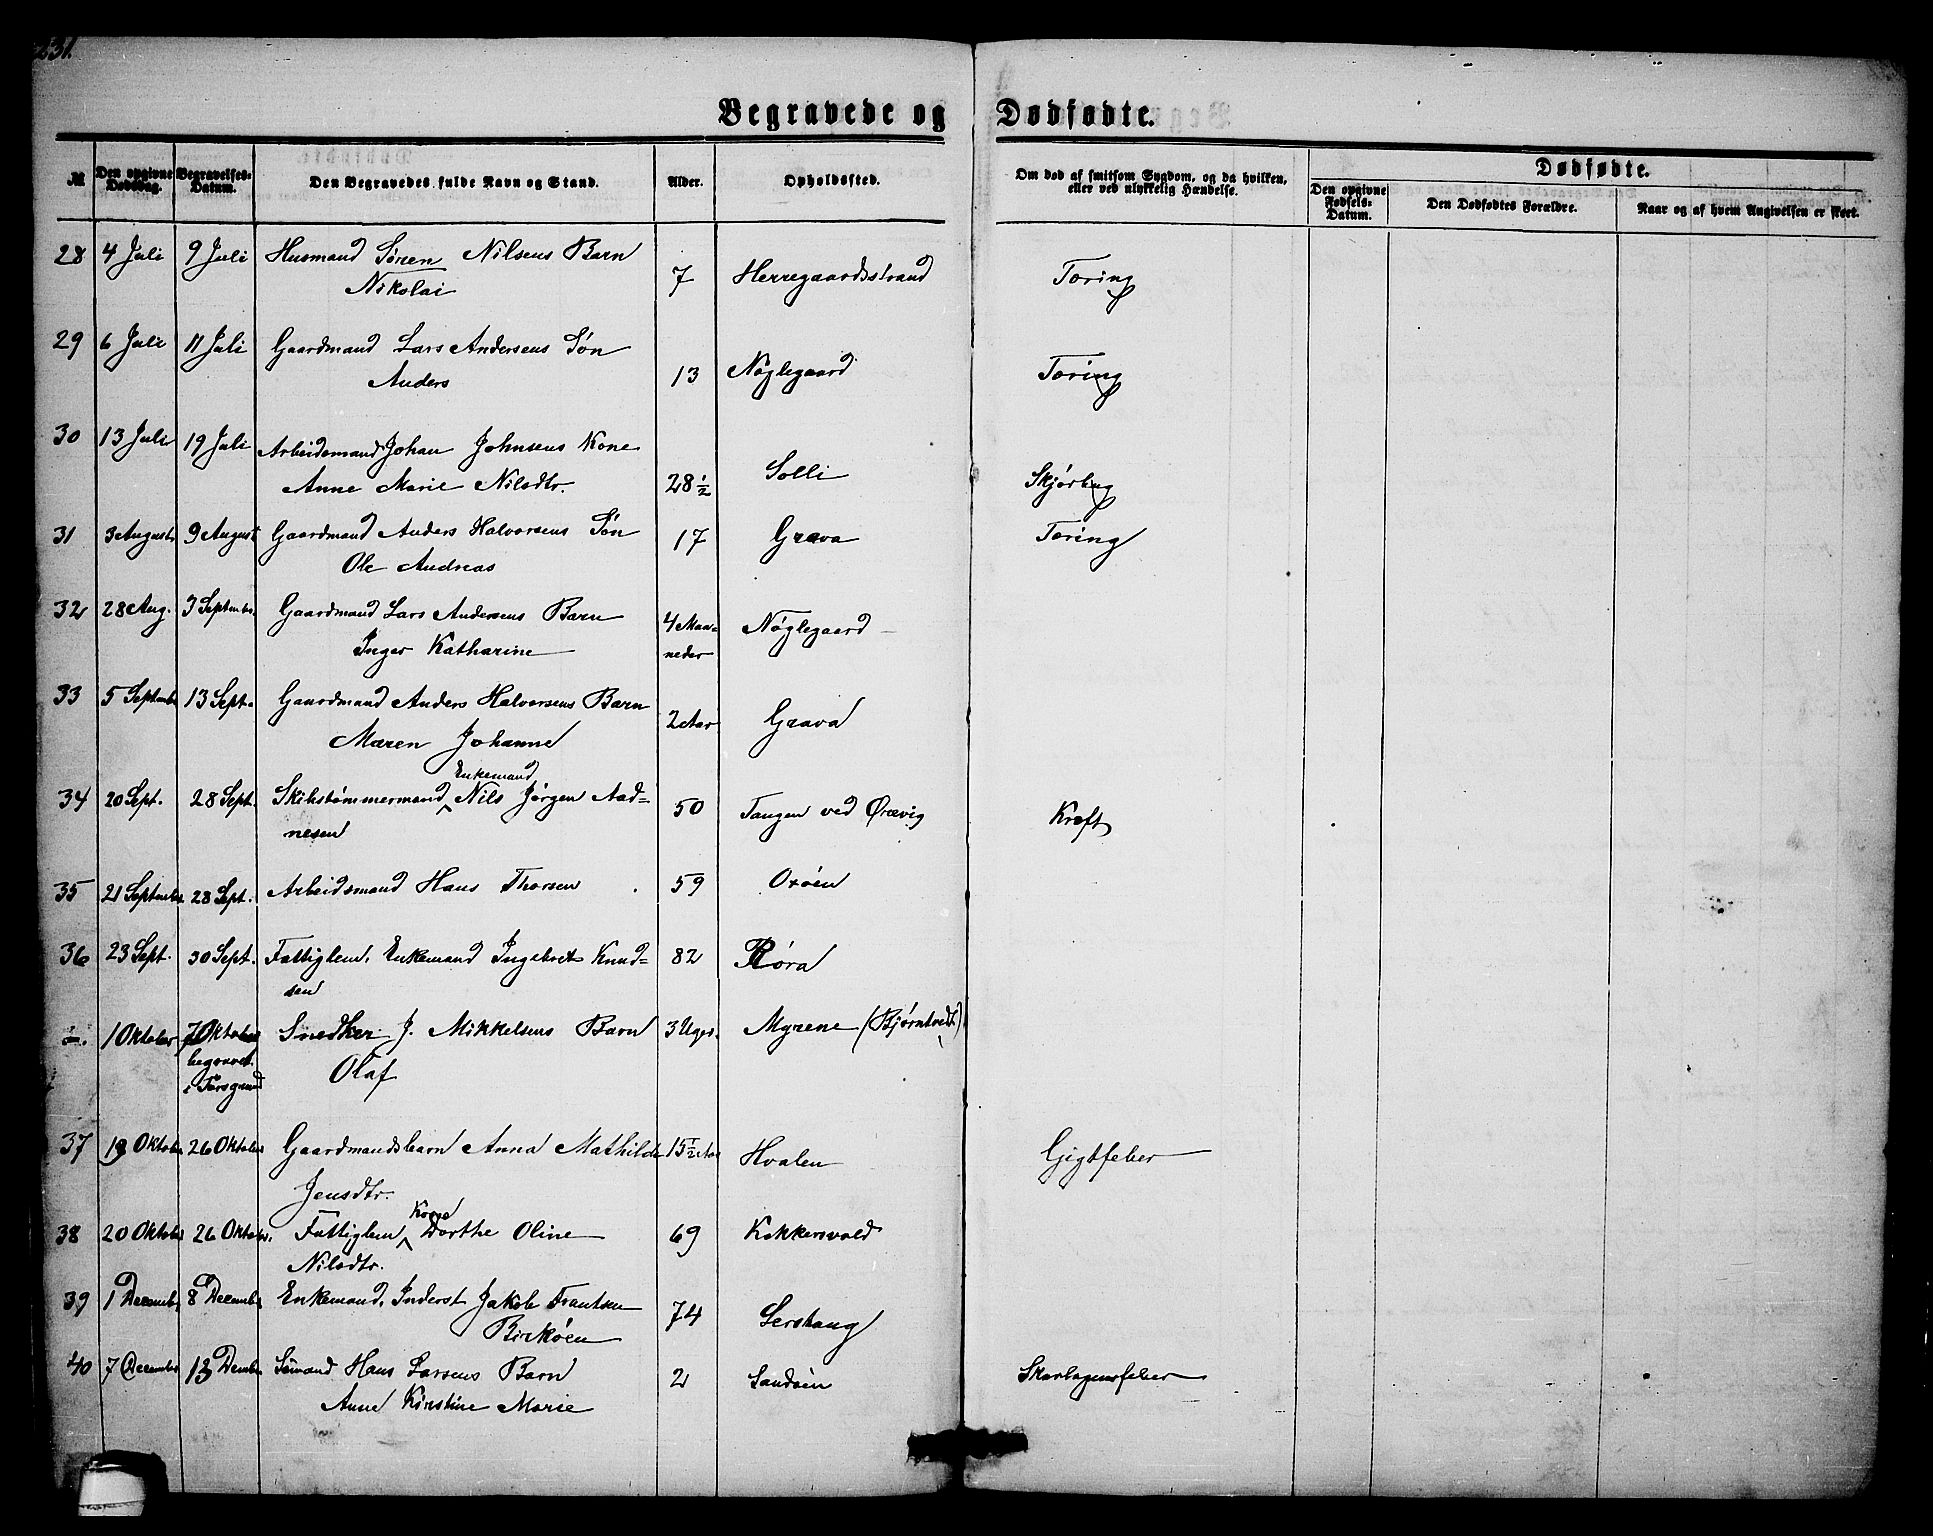 231.
Begravede og Dødfødte.
№ Den opgivne Dødsdag. Begravelses-Datum. Den Begravedes fulde Navn og Stand. Alder. Opholdssted. Om død af smitsom Sygdom, og da hvilken, eller ved ulykkelig Hændelse. Dødfødte.
Den opgivne Fødsels-Datum. Den Dødfødtes Forældre. Naar og af hvem Angivelsen er skeet.
28 4 Juli 9 Juli Husmand Søren Nilsens Barn
Nikolai 7 Herregaardsstrand Tæring
29 6 Juli 11 Juli Gaardmand Lars Andersens Søn
Anders 13 Nøglegaard Tæring
30 13 Juli 19 Juli Arbeidsmand Johan Johnsens Kone
Anne Marie Nilsdtr. 28 1/2 Solli Skjørbug
31 3 August 9 August Gaardmand Anders Halvorsens Søn 17 Grava Tæring
Ole Andreas
32 28 Aug. 3 September Gaardmand Lars Andersens Barn 4 Maa=
Inger Katharine neder Nøglegaard
33 5 September 13 Sept. Gaardmand Anders Halvorsens Barn 2 Aar Grava
Maren Johanne
Enkemand
34 20 Sept. 28 Sept. Skibstømmermand Nils Jørgen Aad= 50 Tangen ved Ørvig Kræft
nesen
35 21 September 28 Sept. Arbeidsmand Hans Thorsen 59 Oxøen
36 23 Sept. 30 Sept. Fattiglem, Enkemand Ingebret Knud= 82 Røra
sen
1 Oktober 7 Oktober Snedker J. Mikkelsens Barn 3 Uger. Myrene (Bjørntvedt)
begravet
i Porsgrund Olaf
37 19 Oktober 26 Oktober Gaardmandsbarn Anna Mathilde 15 1/2 Aar Hvalen Gigtfeber
Jensdtr.
Kone
38 20 Oktober 26 Oktober. Fattiglem Dorthe Oline 69 Kokkersvold
Nilsdtr.
39 1 December 8 December Enkemand, Inderst Jakob Frantsen 74
Birkøen
40 7 December 13 Dember Sømand Hans Larsens Barn 2 Sandøen Skarlagensfeber
Anne Kirstine Marie